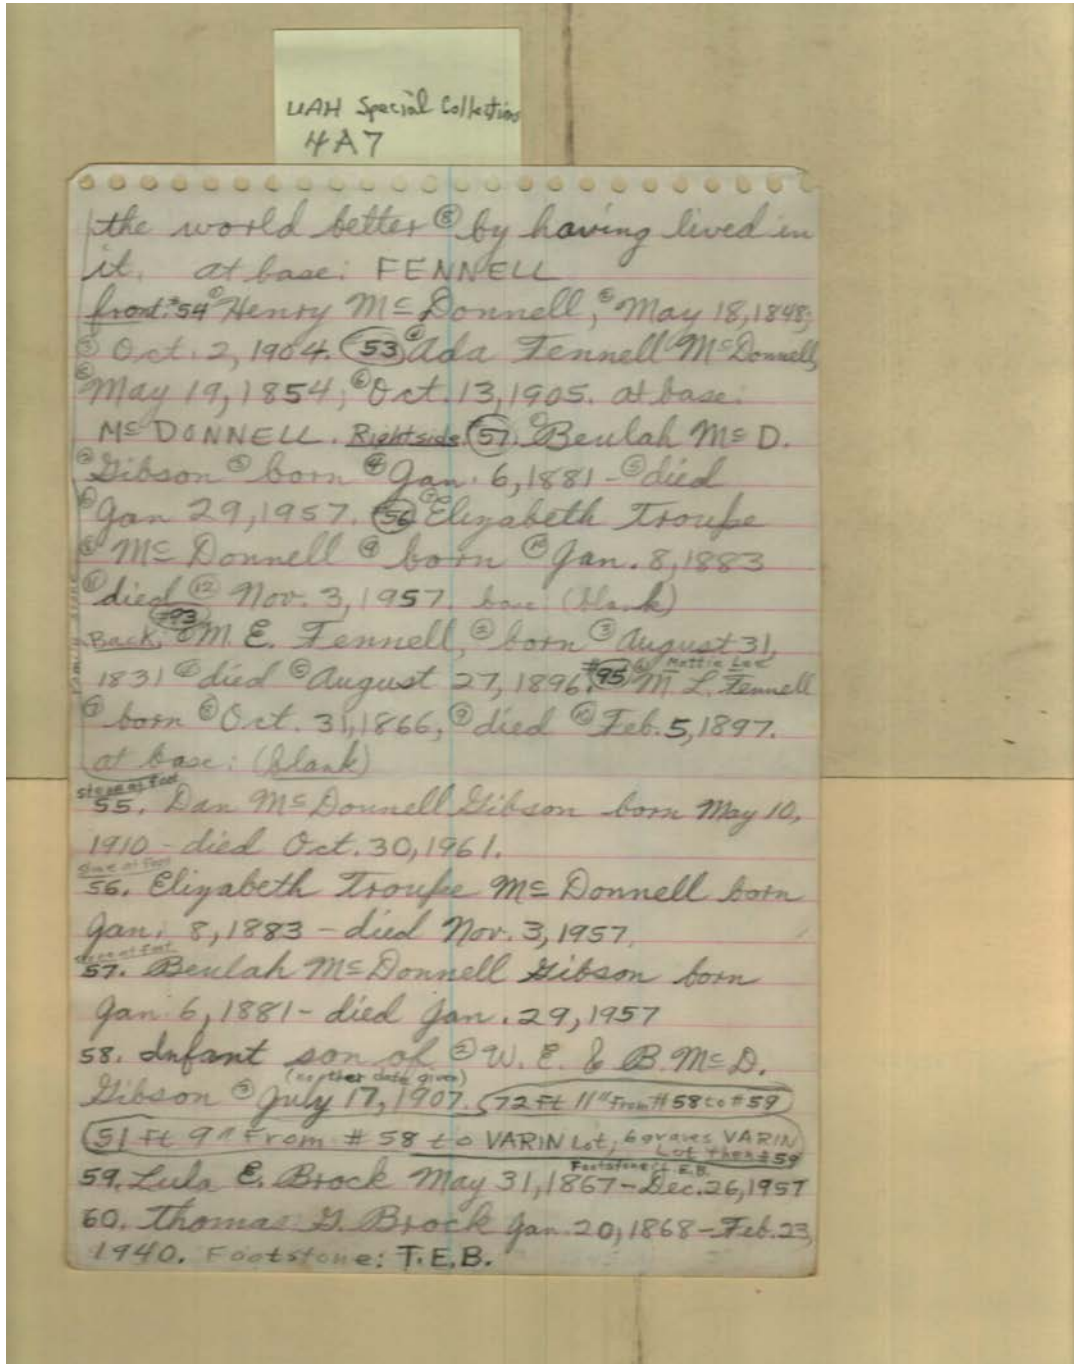 UAH Special Collections
4A7
the world better ⑧ by having lived in
it. at base: FENNELL
front: #54 ① Henry Mc Donnell, ② May 18, 1848;
③ Oct. 2, 1904. 53 ④ Ada Fennell McDonnell
⑤ May 19, 1854; ⑥ Oct. 13, 1905. at base:
Mc DONNELL. Rightside 57. ① Beulah Mc D.
② Gibson ③ born ④ Jan. 6, 1881 - ⑤ died
⑥ Jan 29, 1957. 56 ⑦ Elizabeth Troupe
⑧ Mc Donnell ⑨ born ⑩ Jan. 8, 1883
⑪ died ⑫ Nov. 3, 1957. base: (blank)
Back, #93 ① M. E. Fennell, ② born ③ August 31,
1831 ④ died ⑤ August 27, 1896. #95 ⑥ M L. Fennell
Mattie Lee
⑦ born ⑧ Oct. 31, 1866, ⑨ died ⑩ Feb. 5, 1897.
at base: (blank)
family stone
stone at foot
55. Dan Mc Donnell Gibson born May 10,
1910 - died Oct. 30, 1961.
stone at foot
56. Elizabeth Troupe Mc Donnell born
Jan. 8, 1883 - died Nov. 3, 1957.
stone at foot
57. Beulah Mc Donnell Gibson born
Jan. 6, 1881 - died Jan. 29, 1957
58. Infant son of ② W. E. & B. Mc D.
(no other date given)
Gibson ③ July 17, 1907. 72 Ft 11" From #58 to #59
51 Ft 9" From #58 to VARIN Lot, 6 graves VARIN
Lot then #59
Footstone: L.E.B.
59. Lula E. Brock May 31, 1867 - Dec. 26, 1957
60. Thomas G. Brock Jan. 20, 1868 - Feb. 23,
1940. Footstone: T.E.B.